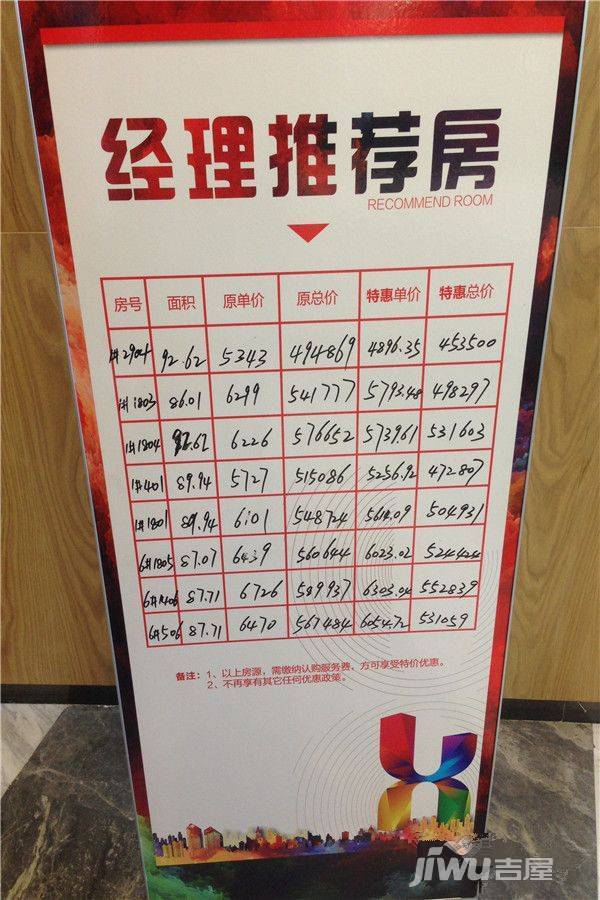 经理推荐房
RECOMMEND ROOM
房号 面积 原单价 原总价 特惠单价 特惠总价
1#2904 92.62 5343 494869 4896.35 453500
1#1803 86.01 6299 541777 5793.48 498297
1#1804 92.62 6226 576652 5739.61 531603
1#401 89.94 5727 515086 5256.92 472807
1#1801 89.94 6101 548724 5614.09 504931
6#1805 87.07 6439 560644 6023.02 524424
6#1406 87.71 6726 589937 6303.04 552839
6#506 87.71 6470 567484 6054.72 531059
备注：1、以上房源，需缴纳认购服务费，方可享受特价优惠。
2、不再享有其它任何优惠政策。
jiwu吉屋